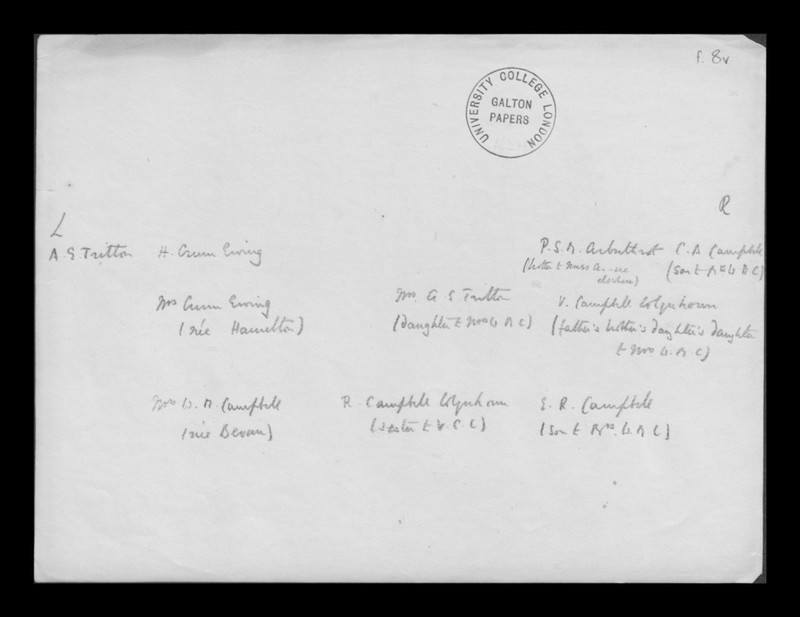 f. 8v
UNIVERSITY COLLEGE LONDON
GALTON
PAPERS
L
R
A. G. Tritton H. Crum Ewing P.S.M. Arbuthnot C. A. Campbell
(son to Mrs W A C)
Mrs Crum Ewing Mrs A G Tritton V. Campbell Colquhoun
(née Hamilton) (daughter to Mrs W A C) (father's brother's daughter's daughter
to Mrs W. A. C)
Mrs W. A. Campbell R. Campbell Colquhoun E. R. Campbell
(née Bevan) (sister to V. C. C) (son to Mrs. W A C)